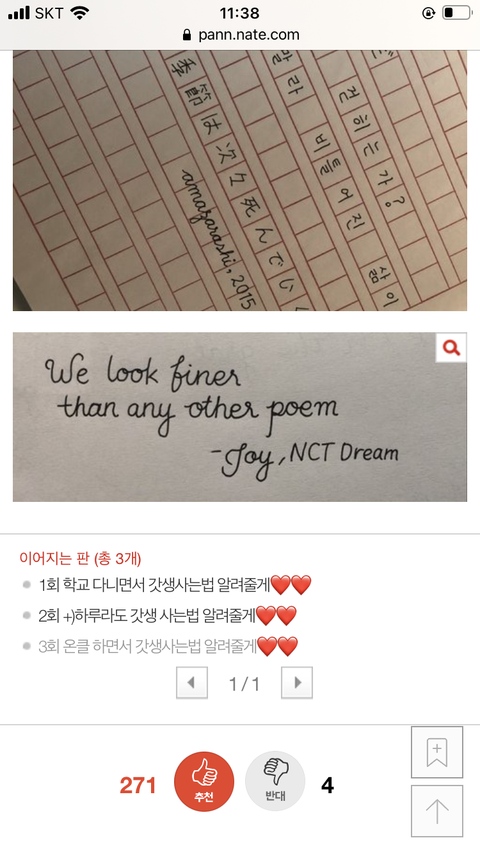 SKT 11:38
pann.nate.com
걷히는가?
말라 비틀어진 삶이
季節は次々死んでいく
amazarashi, 2015
We look finer
than any other poem
-Joy, NCT Dream
이어지는 판 (총 3개)
1회 학교 다니면서 갓생사는법 알려줄게❤️❤️
2회 +)하루라도 갓생 사는법 알려줄게❤️❤️
3회 온클 하면서 갓생사는법 알려줄게❤️❤️
1 / 1
271 추천 반대 4